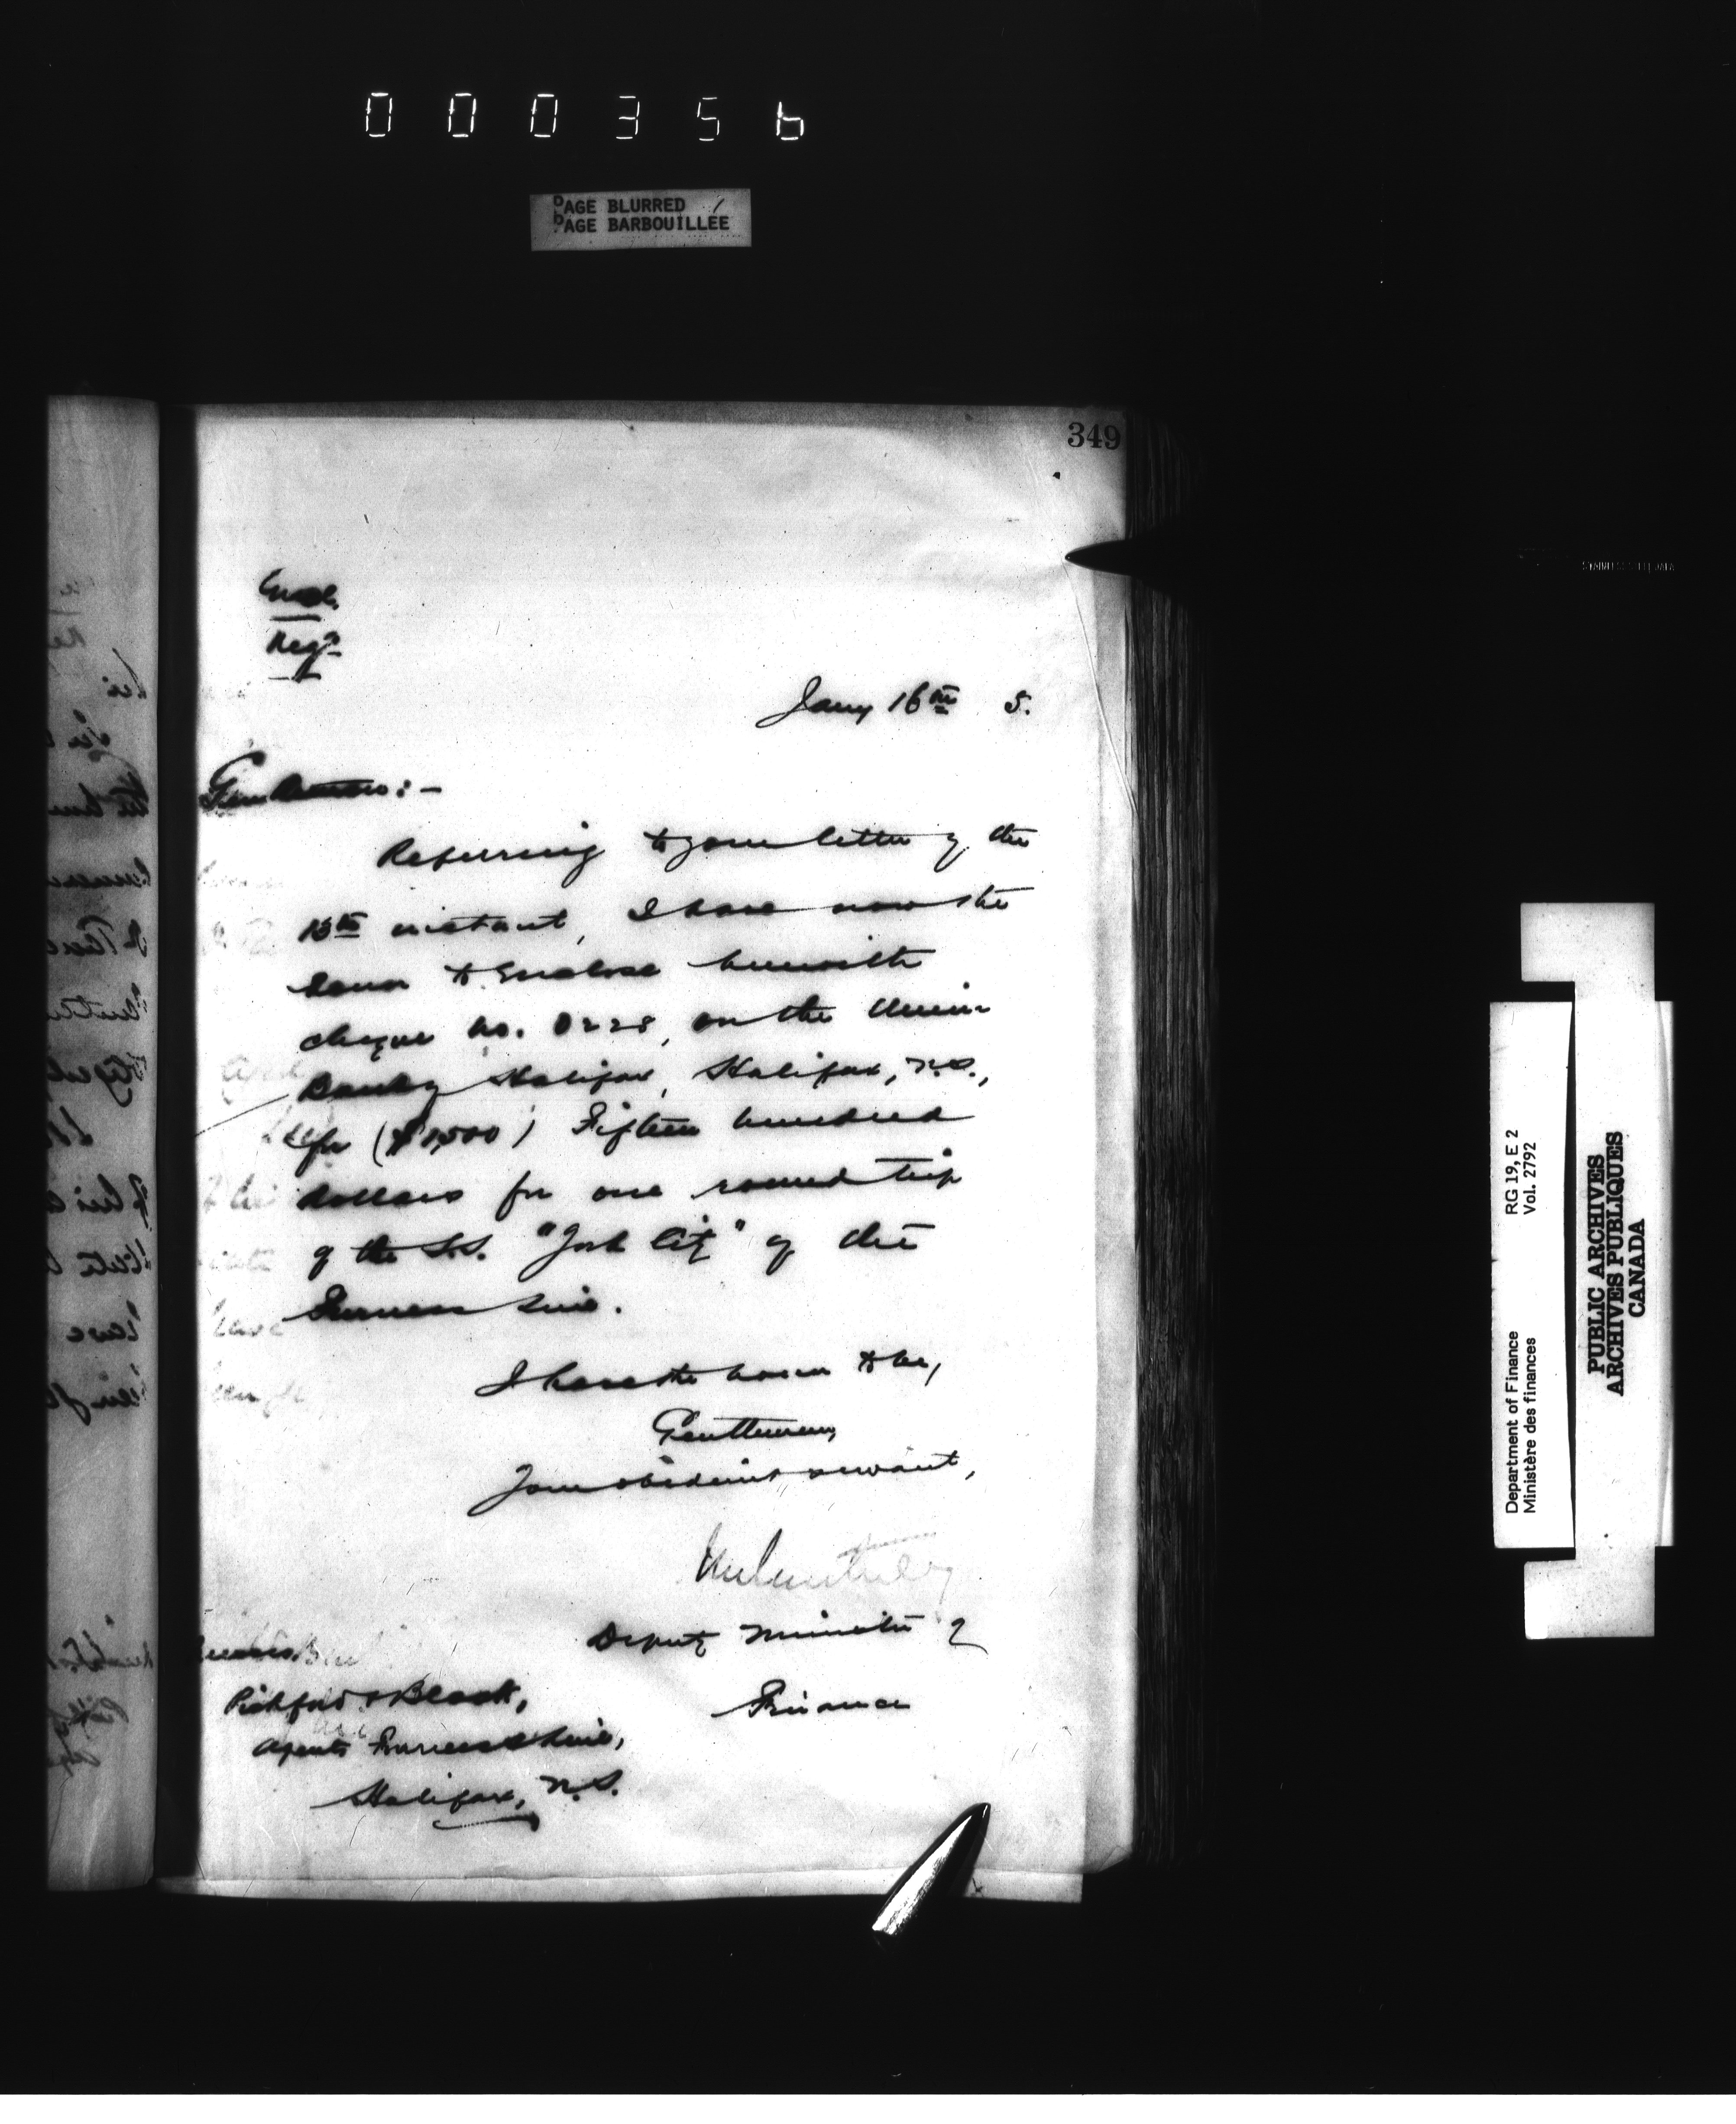 000356
PAGE BLURRED
PAGE BARBOUILLÉE
349
Encl.
Regd.
Jany 16th 5.
Gentlemen:-
Referring to your letter of the
13th instant, I have now the
honor to enclose herewith
cheque no. 0228, on the Union
Bank of Halifax, Halifax, N.S.,
for ($1,500) Fifteen hundred
dollars for one round trip
of the S.S. "York City" of the
Furness Line.
I have the honor to be,
Gentlemen,
Your obedient servant,
Deputy Minister of
Finance
Messrs.
Pickford & Black,
Agents Furness Line,
Halifax, N.S.
Department of Finance
Ministère des finances
RG 19, E 2
Vol. 2792
PUBLIC ARCHIVES
ARCHIVES PUBLIQUES
CANADA